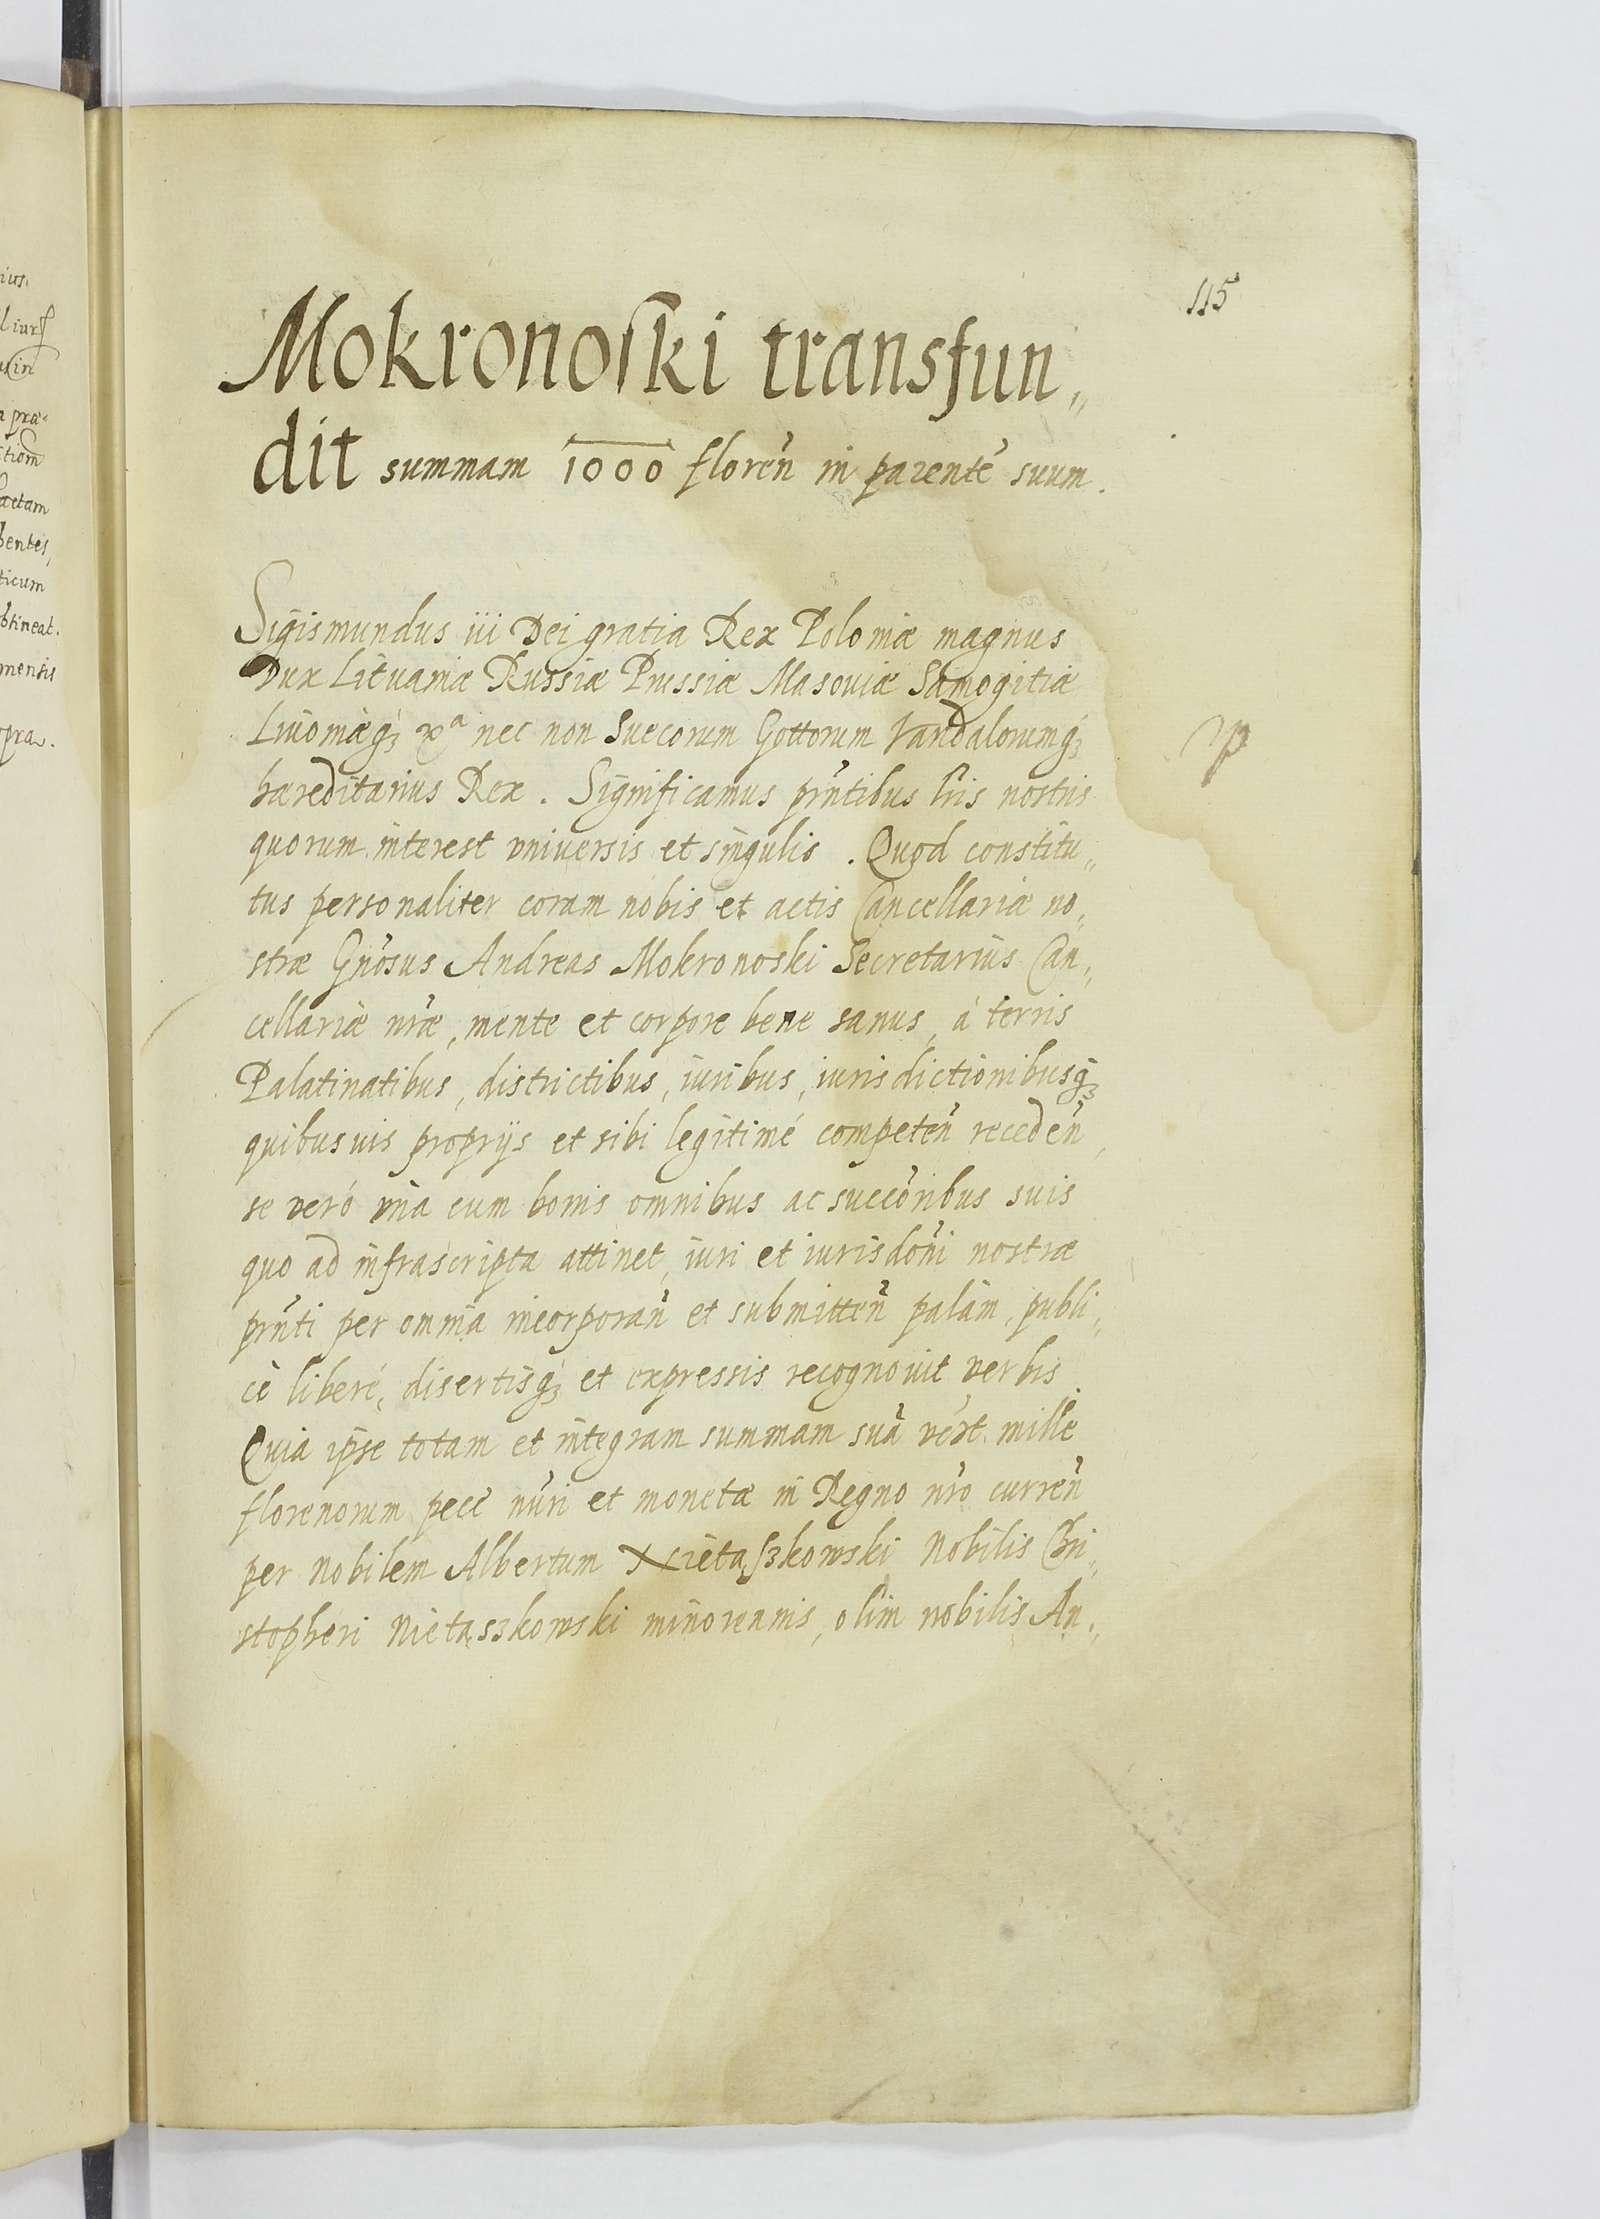 115
Mokronoski transfun„
dit summam 1000 floreñ in parente suum.
Sigismundus iii Dei gratia Rex Poloniæ magnus
Dux Lituaniæ Russiæ Prussiæ Masouiæ Samogitiæ
Liuoniæq₃ nec non Suecorum Gottorum Vandalorumq₃
hæreditarius Rex. Significamus pñtibus lris nostris
quorum interest vniuersis et singulis. Quod constitu„
tus personaliter coram nobis et actis Cancellariæ no„
stræ Gñosus Andreas Mokronoski Secretarius Can„
cellariæ nræ, mente et corpore bene sanus, à terris
Palatinatibus, districtibus, iuribus, iurisdictionibusq₃
quibusuis proprijs et sibi legitimé competeñ recedeñ,
se veró vna cum bonis omnibus ac succõribus suis
quo ad infrascripta attinet, iuri et iurisdoñi nostræ
pñti per omnia incorporañ et submitteñ palàm, publi„
cè liberé, disertisq₃ et expressis recognouit verbis
Quia ipse totam et integram summam suã vért. mille
florenorum pecc nũri et monetæ in Regno nro curreñ
per nobilem Albertum Nietaszkowski Nobilis Chri„
stopheri Nietaszkowski minorennis, olim nobilis An„
p
ius.
l iurs
in
a præ-
tiom
actam
bentes,
ticum
btineat.
mensis
pra.